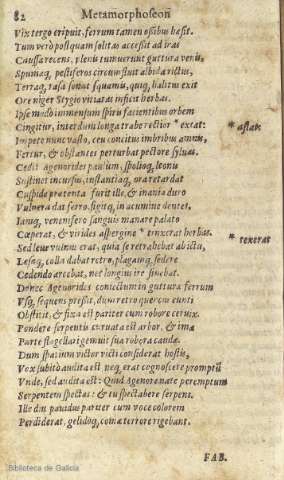 82 Metamorphoseon
Vix tergo eripuit, ferrum tamen ossibus hæsit.
Tum verò postquam solitas accessit ad iras
Caussa recens, plenis tumuerunt guttura venis,
Spumaq, pestiferos circumfluit albida rictus,
Terraq, rasa sonat squamis, quiq, halitus exit
Ore niger Stygio vitiatas inficit herbas.
Ipse modo immensum spiris facientibus orbem
Cingitur, interdum longa trabe rectior * extat:
* astat.
Impete nunc vasto, ceu concitus imbribus amnis,
Fertur, & obstantes perturbat pectore syluas.
Cedit Agenorides paulum, spolioq, leonis
Sustinet incursus, instantiaq, ora retardat
Cuspide prætenta furit ille, & inania duro
Vulnera dat ferro, figitq, in acumine dentes.
Iamq, venenifero sanguis manare palato
Cœperat, & virides aspergine * tinxerat herbas.
* texerat
Sed leue vulnus erat, quia se retrahebat ab ictu,
Læsaq, colla dabat retro, plagamq, sedere
Cedendo arcebat, nec longius ire sinebat.
Donec Agenorides coniectum in guttura ferrum
Vsq, sequens pressit, dum retro quercus eunti
Obstitit, & fixa est pariter cum robore ceruix.
Pondere serpentis curuata est arbor, & ima
Parte flagellari gemuit sua robora caudæ.
Dum spatium victor victi considerat hostis,
Vox subitò audita est neq, erat cognoscere promptũ
Vnde, sed audita est: Quid Agenore nate peremptum
Serpentem spectas? & tu spectabere serpens.
Ille diu pauidus pariter cum voce colorem
Perdiderat, gelidoq, comæ terrore rigebant.
FAB.
Biblioteca de Galicia